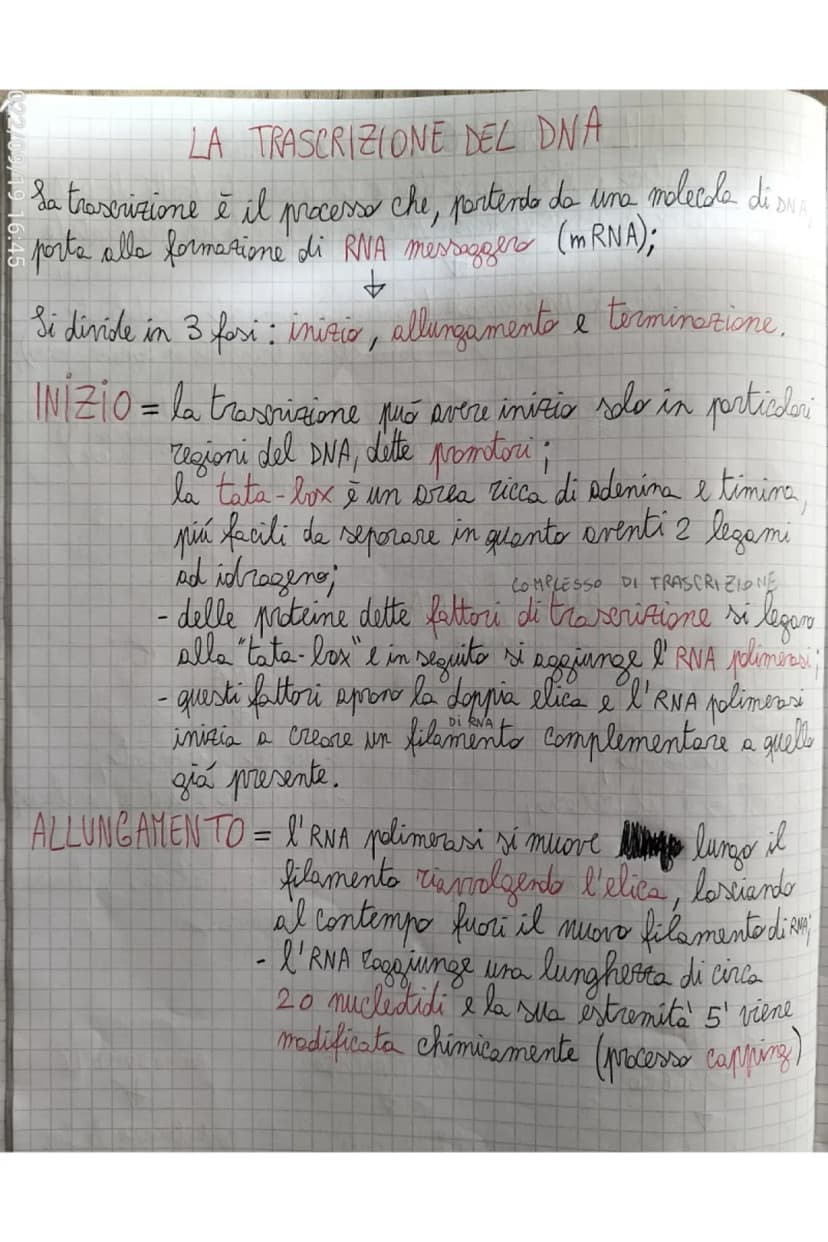 022/09/19 16:45
LA TRASCRIZIONE DEL DNA
La trascrizione è il processo che, partendo da una molecola di DNA,
porta alla formazione di RNA messaggero (mRNA);
↓
Si divide in 3 fasi: inizio, allungamento e terminazione.
INIZIO = la trascrizione può avere inizio solo in particolari
regioni del DNA, dette promotori;
la tata-box è un area ricca di adenina e timina,
piú facili da separare in quanto aventi 2 legami
ad idrogeno;
COMPLESSO DI TRASCRIZIONE
- delle proteine dette fattori di trascrizione si legano
alla "tata-box" e in seguito si aggiunge l'RNA polimerasi;
- questi fattori aprono la doppia elica e l'RNA polimerasi
DI RNA
inizia a creare un filamento complementare a quello
giá presente.
ALLUNGAMENTO = l'RNA polimerasi si muove lungo il
filamento riavvolgendo l'elica, lasciando
al contempo fuori il nuovo filamento di RNA;
- l'RNA raggiunge una lunghezza di circa
20 nucleotidi e la sua estremità 5' viene
modificata chimicamente (processo capping)